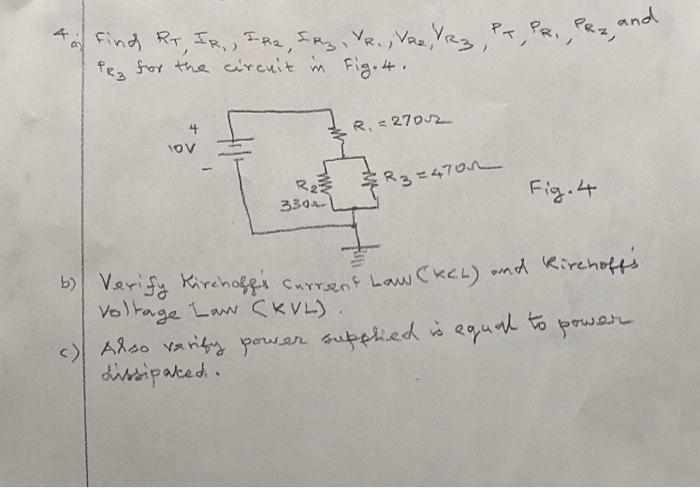 4. a) Find RT, IR1, IR2, IR3, VR1, VR2, VR3, PT, PR1, PR2, and
PR3 for the circuit in Fig. 4.
+
10V
-
R1 = 270Ω
R2
330Ω
R3 = 470Ω
Fig. 4
b) Verify Kirchoff's Current Law (KCL) and Kirchoff's
Voltage Law (KVL).
c) Also verify power supplied is equal to power
dissipated.